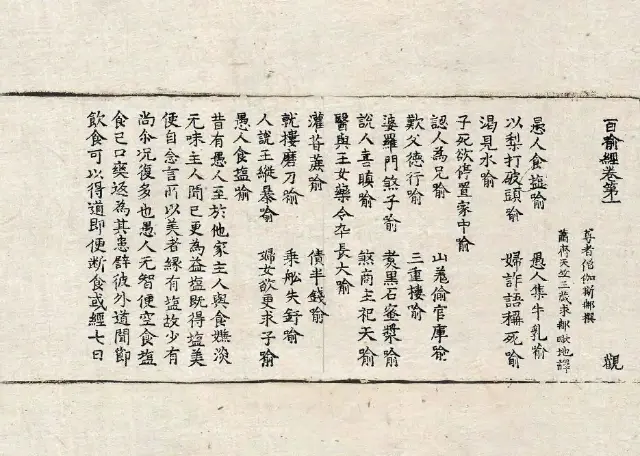 百喻經卷第一 觀
尊者僧伽斯那撰
蕭齊天竺三藏求那毗地譯
愚人食塩喻 愚人集牛乳喻
以梨打破頭喻 婦詐語稱死喻
渴見水喻
子死欲停置家中喻
認人為兄喻 山羌偷官庫喻
歎父徳行喻 三重樓喻
婆羅門煞子喻 煮黑石蜜漿喻
說人喜瞋喻 煞商主祀天喻
醫與王女藥令卒長大喻
灌苷蔗喻 債半錢喻
就樓磨刀喻 乘舩失釪喻
人說王縱暴喻 婦女欲更求子喻
愚人食塩喻
昔有愚人至於他家主人與食嫌淡
无味主人聞已更為益塩既得塩美
便自念言所以美者緣有塩故少有
尚尒況復多也愚人无智便空食塩
食已口爽返為其患譬彼外道聞節
飲食可以得道即便断食或經七日